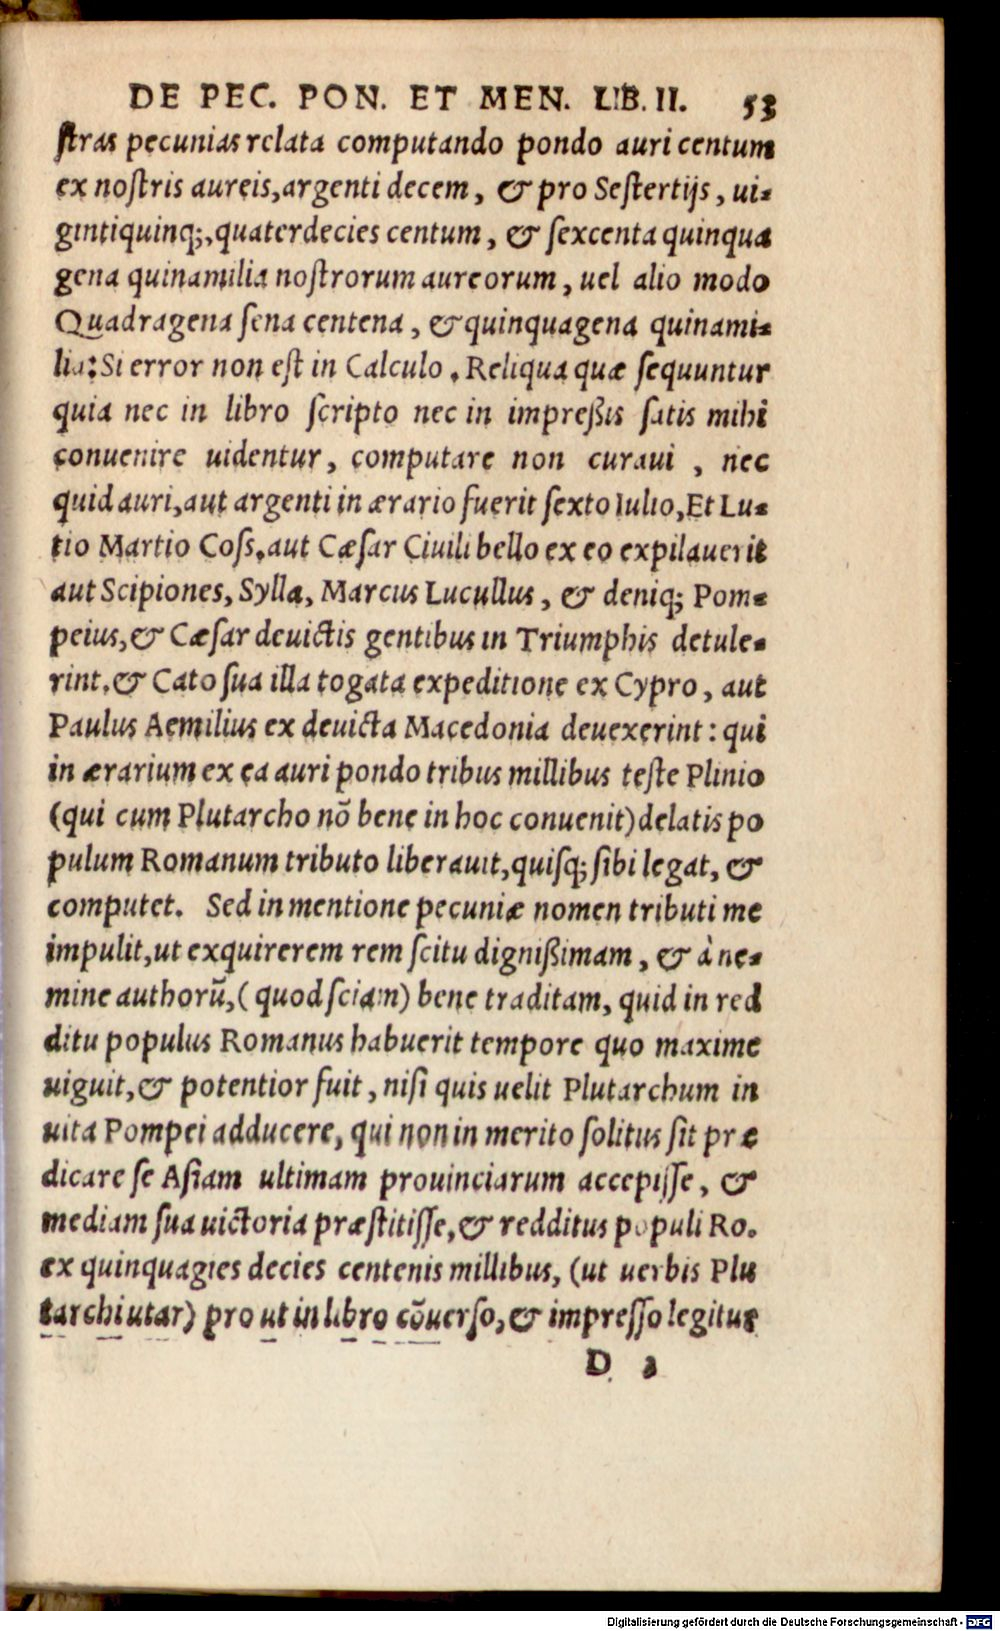 DE PEC. PON. ET MEN. LIB. II. 53
ſtras pecunias relata computando pondo auri centum
ex noſtris aureis, argenti decem, & pro Seſtertijs, ui-
gintiquinq;, quaterdecies centum, & ſexcenta quinqua
gena quinamilia noſtrorum aureorum, uel alio modo
Quadragena ſena centena, & quinquagena quinami-
lia: Si error non eſt in Calculo. Reliqua quæ ſequuntur
quia nec in libro ſcripto nec in impreßis ſatis mihi
conuenire uidentur, computare non curaui, nec
quid auri, aut argenti in ærario fuerit ſexto Iulio, Et Lu-
tio Martio Coſs. aut Cæſar Ciuili bello ex eo expilauerit
aut Scipiones, Sylla, Marcus Lucullus, & deniq; Pom-
peius, & Cæſar deuictis gentibus in Triumphis detule-
rint. & Cato ſua illa togata expeditione ex Cypro, aut
Paulus Aemilius ex deuicta Macedonia deuexerint: qui
in ærarium ex ea auri pondo tribus millibus teſte Plinio
(qui cum Plutarcho nõ bene in hoc conuenit) delatis po
pulum Romanum tributo liberauit, quiſq; ſibi legat, &
computet. Sed in mentione pecuniæ nomen tributi me
impulit, ut exquirerem rem ſcitu dignißimam, & à ne-
mine authorũ, (quod ſciam) bene traditam, quid in red
ditu populus Romanus habuerit tempore quo maxime
uiguit, & potentior fuit, niſi quis uelit Plutarchum in
uita Pompei adducere, qui non in merito ſolitus ſit præ
dicare ſe Aſiam ultimam prouinciarum accepiſſe, &
mediam ſua uictoria præſtitiſſe, & redditus populi Ro.
ex quinquagies decies centenis millibus, (ut uerbis Plu
tarchi utar) pro ut in libro cõuerſo, & impreſſo legitur
D 3
Digitalisierung gefördert durch die Deutsche Forschungsgemeinschaft - DFG